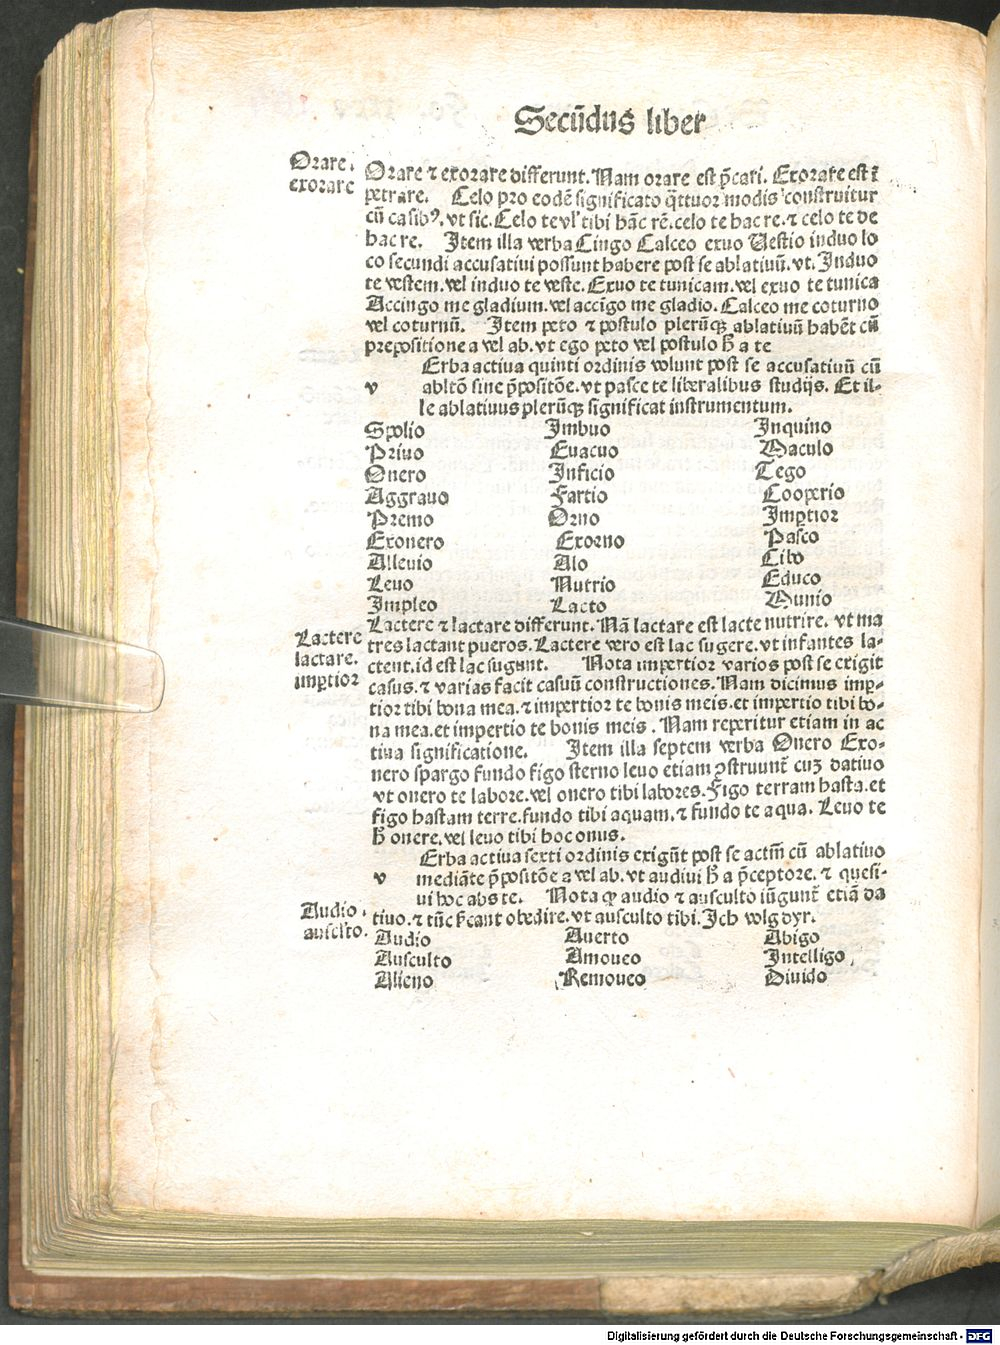 Secūdus liber
Orare.
exorare
Orare ⁊ exorare differunt. Nam orare est p̄cari. Exorare est ī
petrare. Celo pro eodē significato q̄ttuor modis construitur
cū casibꝰ. vt sic. Celo te vl' tibi hāc rē. celo te hac re. ⁊ celo te de
hac re. Item illa verba Cingo Calceo exuo Uestio induo lo
co secundi accusatiui possunt habere post se ablatiuū. vt. Induo
te vestem. vel induo te veste. Exuo te tunicam. vel exuo te tunica
Accingo me gladium. vel accīgo me gladio. Calceo me coturno
vel coturnū. Item peto ⁊ postulo plerūqꝫ ablatiuū habēt cū
prepositione a vel ab. vt ego peto vel postulo h̄ a te
Erba actiua quinti ordinis volunt post se accusatiuū cū
v abltō sine p̄positōe. vt pasce te liberalibus studijs. Et il-
le ablatiuus plerūqꝫ significat instrumentum.
Spolio Imbuo Inquino
Priuo Euacuo Maculo
Onero Inficio Tego
Aggrauo Fartio Cooperio
Premo Orno Imꝑtior
Exonero Exorno Pasco
Alleuio Alo Cibo
Leuo Nutrio Educo
Impleo Lacto Munio
Lactere
lactare.
imꝑtior
Lactere ⁊ lactare differunt. Nā lactare est lacte nutrire. vt ma
tres lactant pueros. Lactere vero est lac sugere. vt infantes la-
ctent. id est lac sugunt. Nota impertior varios post se exigit
casus. ⁊ varias facit casuū constructiones. Nam dicimus imꝑ-
tior tibi bona mea. ⁊ impertior te bonis meis. et impertio tibi bo-
na mea. et impertio te bonis meis. Nam reperitur etiam in ac
tiua significatione. Item illa septem verba Onero Exo-
nero spargo fundo figo sterno leuo etiam ꝯstruunt̄ cuꝫ datiuo
vt onero te labore. vel onero tibi labores. Figo terram hasta. et
figo hastam terre. fundo tibi aquam. ⁊ fundo te aqua. Leuo te
h̄ onere. vel leuo tibi hoc onus.
Erba actiua sexti ordinis exigūt post se actm̄ cū ablatiuo
v mediāte p̄positōe a vel ab. vt audiui h̄ a p̄ceptore. ⁊ quesi-
ui hoc abs te. Nota ꝙ audio ⁊ ausculto iūgunt̄ etiā da
Audio.
auscl̄to.
tiuo. ⁊ tūc s̄cant obedire. vt ausculto tibi. Ich volg dyr.
Audio Auerto Abigo
Ausculto Amoueo Intelligo
Alieno Remoueo Diuido
Digitalisierung gefördert durch die Deutsche Forschungsgemeinschaft - DFG